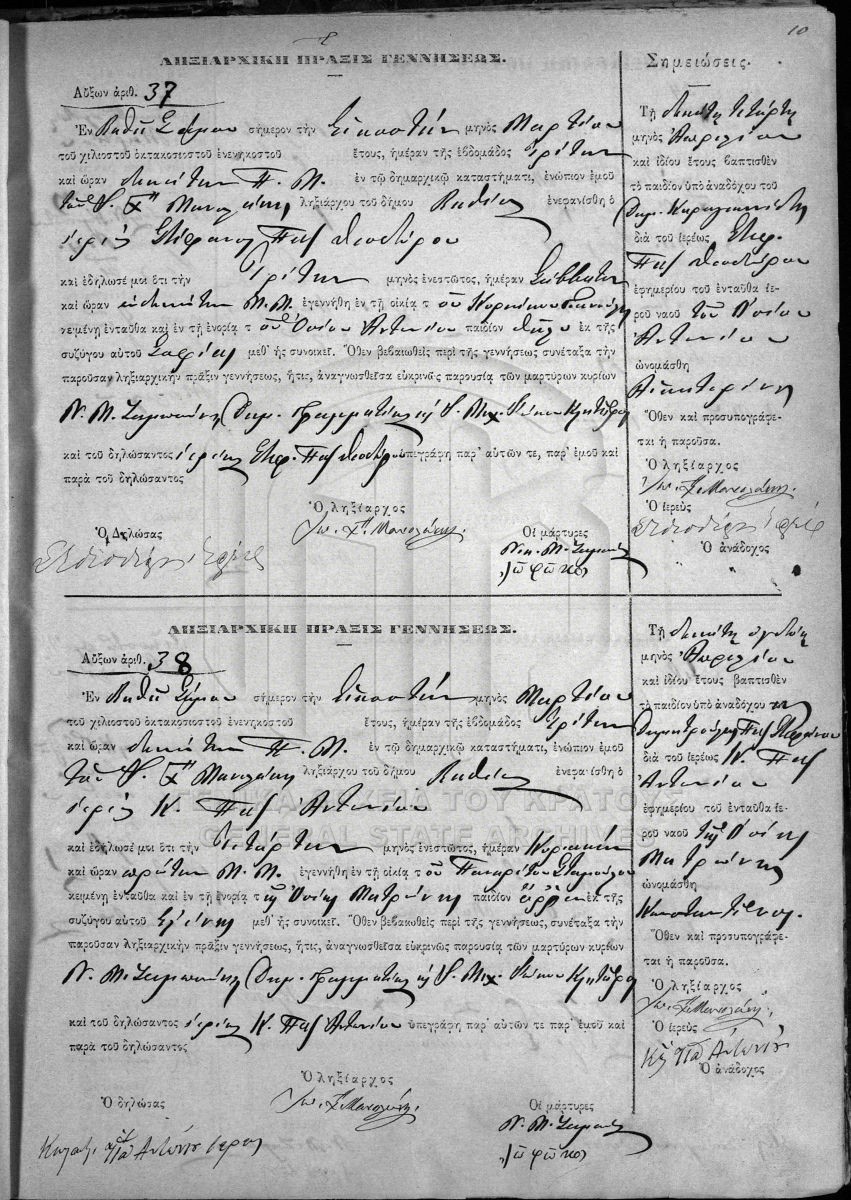 10
ΛΗΞΙΑΡΧΙΚΗ ΠΡΑΞΙΣ ΓΕΝΝΗΣΕΩΣ.
Αὔξων ἀριθ. 37
Ἐν Βαθεῖ Σάμου σήμερον τὴν Εἰκοστὴν μηνὸς Μαρτίου
τοῦ χιλιοστοῦ ὀκτακοσιοστοῦ ἐνενηκοστοῦ ἔτους, ἡμέραν τῆς ἑβδομάδος Τρίτην
καὶ ὥραν δεκάτην Π. Μ. ἐν τῷ δημαρχικῷ καταστήματι, ἐνώπιον ἐμοῦ
τοῦ Μανωλάκη ληξιάρχου τοῦ δήμου Βαθέος ἐνεφανίσθη ὁ
ἱερεὺς Στέφανος Παπ Θεοδώρου
καὶ ἐδήλωσέ μοι ὅτι τὴν Τρίτην μηνὸς ἐνεστῶτος, ἡμέραν Σάββατον
καὶ ὥραν ἑνδεκάτην Μ. Μ. ἐγεννήθη ἐν τῇ οἰκίᾳ τοῦ
κειμένῃ ἐνταῦθα καὶ ἐν τῇ ἐνορίᾳ τοῦ Ὁσίου Ἀντωνίου παιδίον θῆλυ ἐκ τῆς
συζύγου αὐτοῦ Σοφίας μεθ᾽ ἧς συνοικεῖ. Ὅθεν βεβαιωθεὶς περὶ τῆς γεννήσεως συνέταξα τὴν
παροῦσαν ληξιαρχικὴν πρᾶξιν γεννήσεως, ἥτις, ἀναγνωσθεῖσα εὐκρινῶς παρουσίᾳ τῶν μαρτύρων κυρίων
Ν. Μ. Δημ. Γραμματέως καὶ Ἰ. Μιχ. Φώκου Κλητῆρος
καὶ τοῦ δηλώσαντος ἱερέως Στεφ. Παπ Θεοδώρου ὑπεγράφη παρ᾽ αὐτῶν τε, παρ᾽ ἐμοῦ καὶ
παρὰ τοῦ δηλώσαντος
Ὁ ληξίαρχος
Ἰω. Χ" Μανωλάκης
Ὁ Δηλώσας
Οἱ μάρτυρες
Νικ. Μ.
Ἰω φῶκος
Σημειώσεις.
Τῇ δεκάτῃ τετάρτῃ
μηνὸς Ἀπριλίου
καὶ ἰδίου ἔτους βαπτισθὲν
τὸ παιδίον ὑπὸ ἀναδόχου τοῦ
Δημ. Καραγιαννίδη
διὰ τοῦ ἱερέως Στεφ.
Παπ Θεοδώρου
ἐφημερίου τοῦ ἐνταῦθα ἱε-
ροῦ ναοῦ τοῦ Ὁσίου
Ἀντωνίου
ὠνομάσθη
Αἰκατερίνη
Ὅθεν καὶ προσυπογράφε-
ται ἡ παροῦσα.
Ὁ ληξίαρχος
Ἰω. Χ. Μανωλάκης.
Ὁ ἱερεὺς
Ὁ ἀνάδοχος
ΛΗΞΙΑΡΧΙΚΗ ΠΡΑΞΙΣ ΓΕΝΝΗΣΕΩΣ.
Αὔξων ἀριθ. 38
Ἐν Βαθεῖ Σάμου σήμερον τὴν Εἰκοστὴν μηνὸς Μαρτίου
τοῦ χιλιοστοῦ ὀκτακοσιοστοῦ ἐνενηκοστοῦ ἔτους, ἡμέραν τῆς ἑβδομάδος Τρίτην
καὶ ὥραν δεκάτην Π. Μ. ἐν τῷ δημαρχικῷ καταστήματι, ἐνώπιον ἐμοῦ
τοῦ Μανωλάκη ληξιάρχου τοῦ δήμου Βαθέος ἐνεφανίσθη ὁ
ἱερεὺς Κ. Παπ Ἀντωνίου
ΓΕΝΙΚΑ ΑΡΧΕΙΑ ΤΟΥ ΚΡΑΤΟΥΣ
GENERAL STATE ARCHIVES
καὶ ἐδήλωσέ μοι ὅτι τὴν Τετάρτην μηνὸς ἐνεστῶτος, ἡμέραν Κυριακὴν
καὶ ὥραν πρώτην Μ. Μ. ἐγεννήθη ἐν τῇ οἰκίᾳ τοῦ
κειμένῃ ἐνταῦθα καὶ ἐν τῇ ἐνορίᾳ τῆς Ὁσίας Ματρώνης παιδίον ἄρρεν ἐκ τῆς
συζύγου αὐτοῦ Ἑλένης μεθ᾽ ἧς συνοικεῖ. Ὅθεν βεβαιωθεὶς περὶ τῆς γεννήσεως, συνέταξα τὴν
παροῦσαν ληξιαρχικὴν πρᾶξιν γεννήσεως, ἥτις, ἀναγνωσθεῖσα εὐκρινῶς παρουσίᾳ τῶν μαρτύρων κυρίων
Ν. Μ. Δημ. Γραμματέως καὶ Ἰ. Μιχ. Φώκου Κλητῆρος
καὶ τοῦ δηλώσαντος ἱερέως Κ. Παπ Ἀντωνίου ὑπεγράφη παρ᾽ αὐτῶν τε παρ᾽ ἐμοῦ καὶ
παρὰ τοῦ δηλώσαντος
Ὁ ληξίαρχος
Ἰω. Χ. Μανωλάκης.
Ὁ δηλώσας
Παπᾶ Ἀντωνίου ἱερεὺς
Οἱ μάρτυρες
Ν. Μ.
Ἰω φῶκος
Τῇ δεκάτῃ ὀγδόῃ
μηνὸς Ἀπριλίου
καὶ ἰδίου ἔτους βαπτισθὲν
τὸ παιδίον ὑπὸ ἀναδόχου
διὰ τοῦ ἱερέως Κ. Παπ
Ἀντωνίου
ἐφημερίου τοῦ ἐνταῦθα ἱε-
ροῦ ναοῦ τῆς Ὁσίας
Ματρώνης
ὠνομάσθη
Κωνσταντῖνος.
Ὅθεν καὶ προσυπογράφε-
ται ἡ παροῦσα.
Ὁ ληξίαρχος
Ἰω. Χ. Μανωλάκης.
Ὁ ἱερεὺς
Παπᾶ Ἀντωνίου
Ὁ ἀνάδοχος